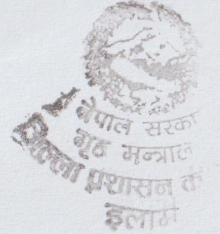 नेपाल सरका
गृह मन्त्राल
जिल्ला प्रशासन का
इलाम